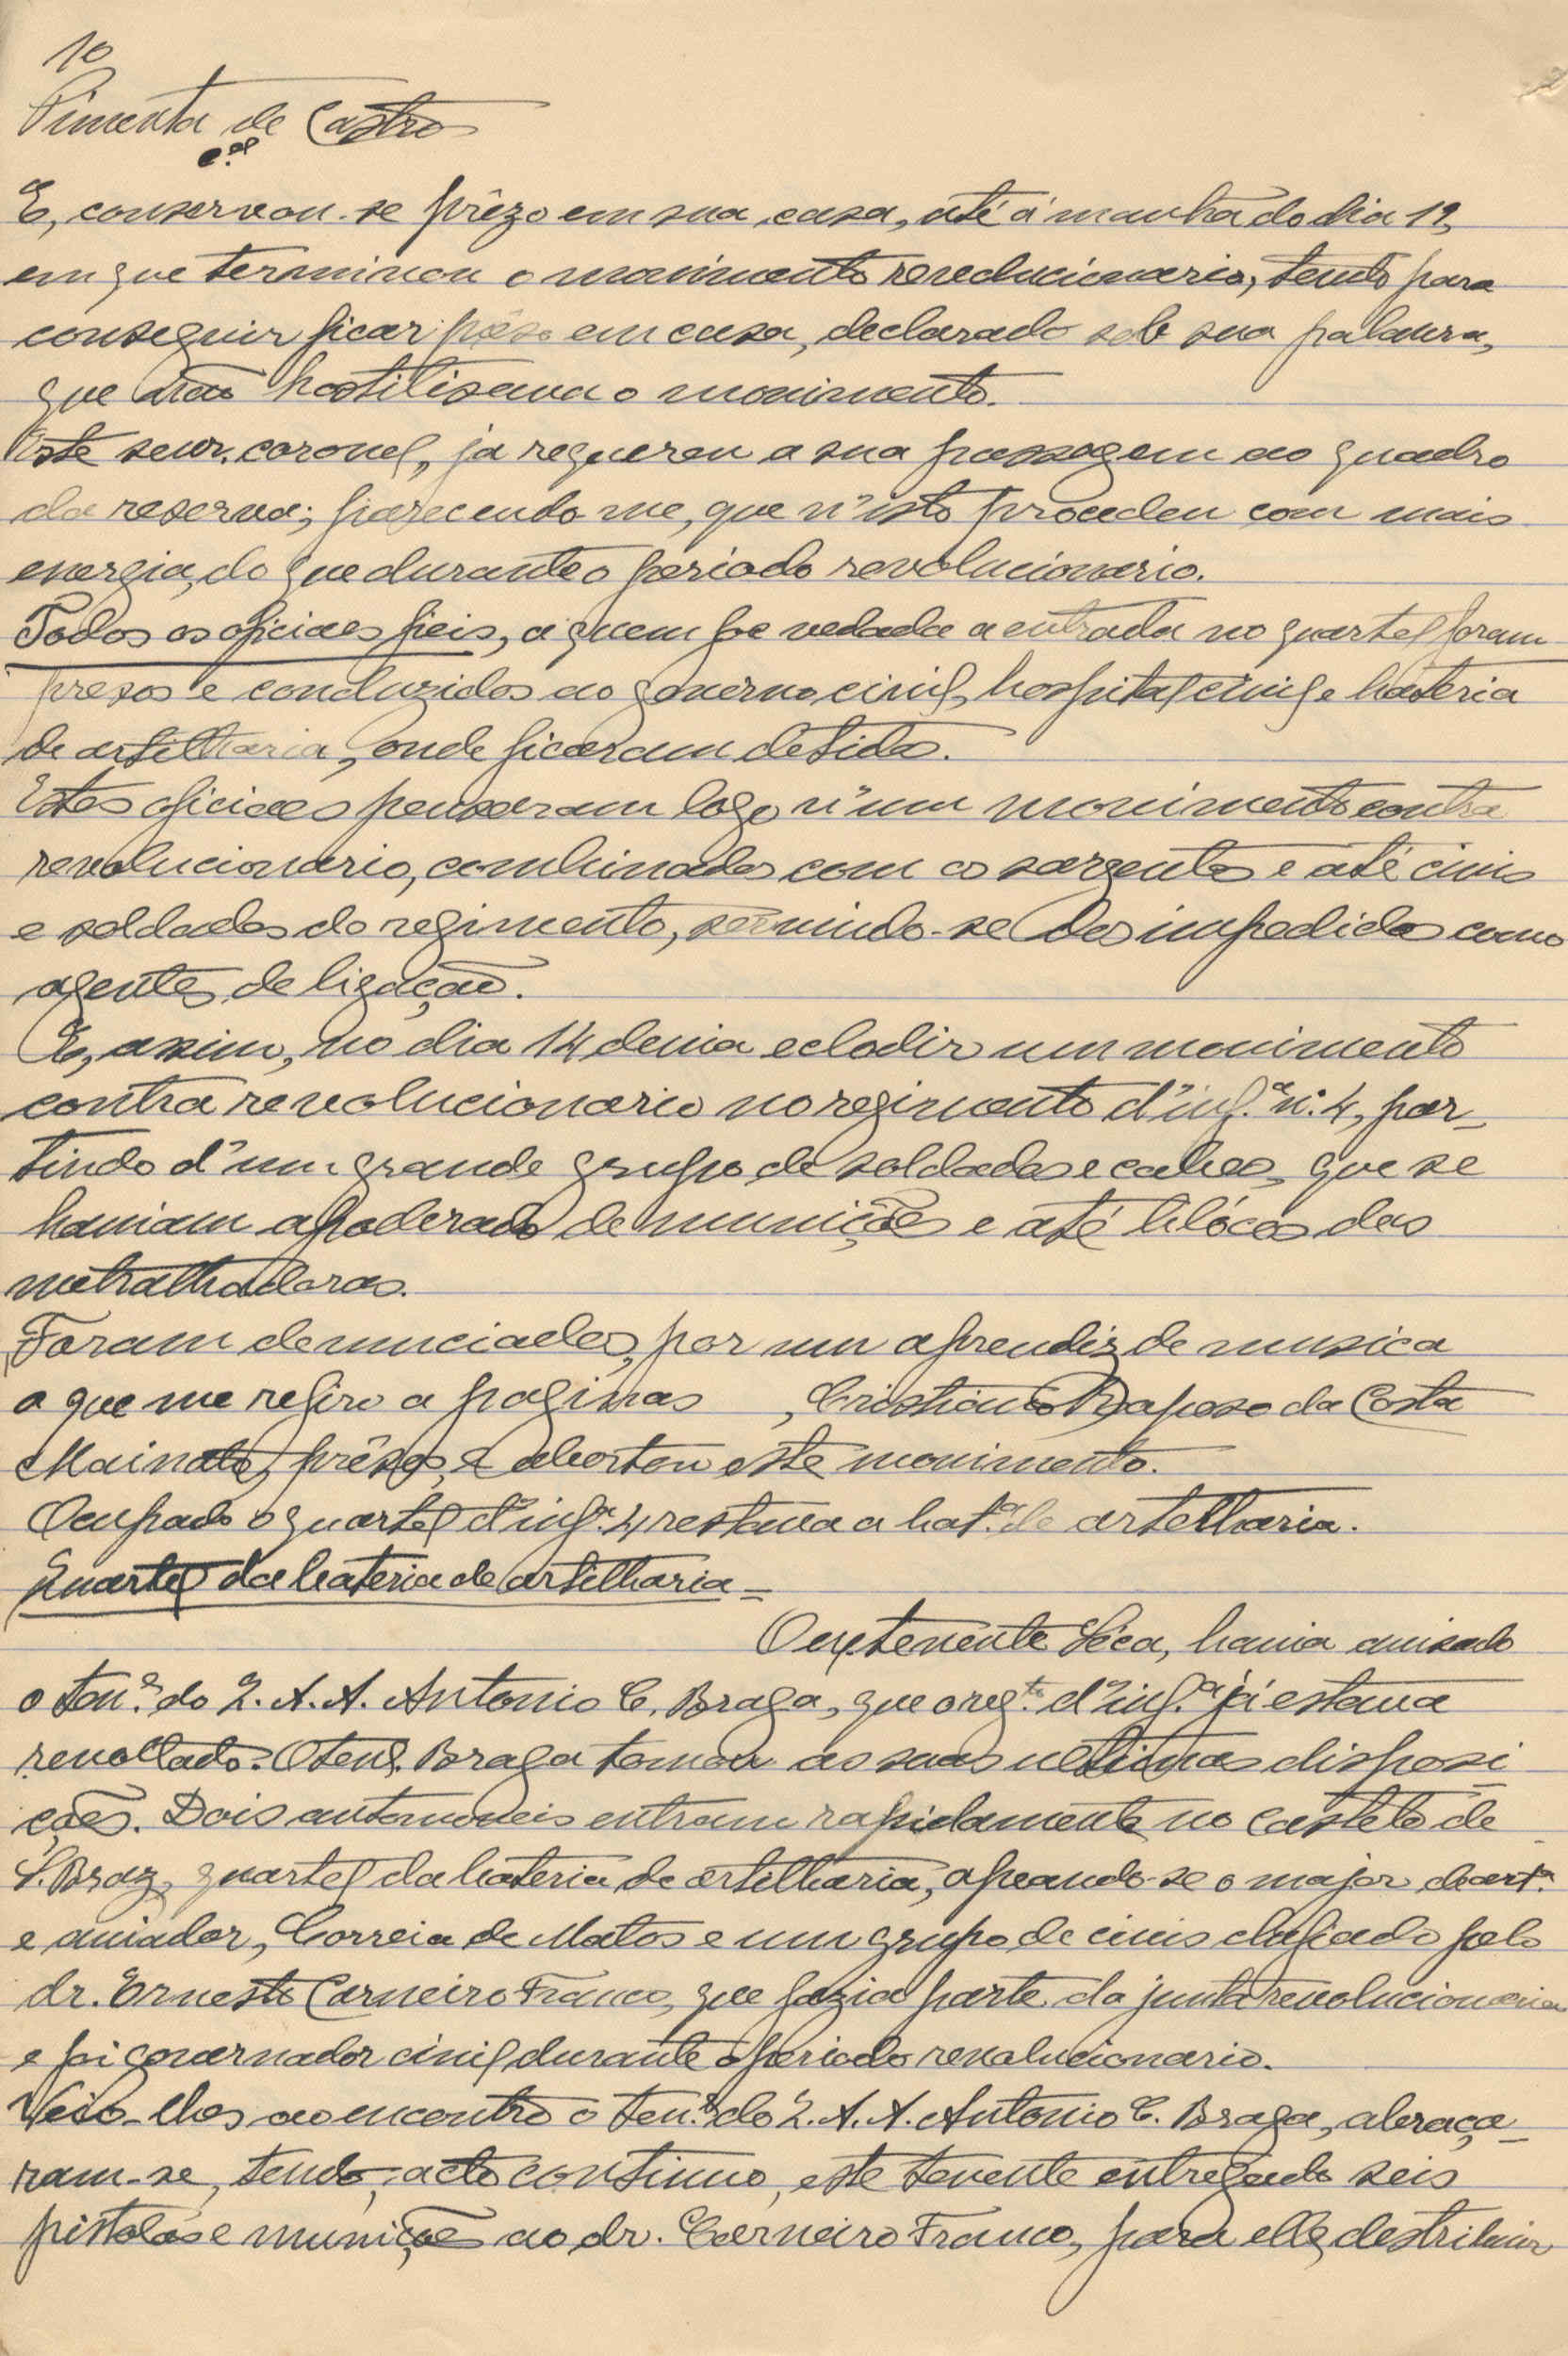 10
Pimenta de Castro
c.el
E, conservou-se prêzo em sua casa, até á manhã do dia 19,
em que terminou o movimento revolucionario, tendo para
conseguir ficar prêso em casa, declarado sob sua palavra,
que não hostilisava o movimento.
Este snr. coronel, ja requereu a sua passagem ao quadro
da reserva; parecendo-me, que n'isto procedeu com mais
energia, do que durante o periodo revolucionario.
Todos os oficiaes fieis, a quem foe vedada a entrada no quartel foram
presos e conduzidos ao governo civil, hospital civil e bateria
de artilharia, onde ficaram detidos.
Estes oficiaes pensaram logo n'um movimento contra
revolucionario, combinados com os sargentos e até civis
e soldados do regimento, servindo-se dos impedidos como
agentes de ligação.
E, assim, no dia 14 devia eclodir um movimento
contra revolucionario no regimento d'inf.ª n.º 4, par-
tindo d'um grande grupo de soldados e cabos, que se
haviam apoderado de munições e até blócos das
metralhadoras.
Foram denunciados, por um aprendiz de musica
a que me refiro a paginas , Cristiano Raposo da Costa
Mainoto, prêsos, e abortou este movimento.
Ocupado o quartel d'inf.ª 4 restava a bat.ª de artelharia.
Quartel da bateria de artilharia =
O tenente Sêca, havia avisado
o ten.e do Q. A. A. Antonio C. Braga, que o reg.to d'inf.ª já estava
revoltado. O ten.e Braga tomou as suas ultimas disposi
ções. Dois automoveis entram rapidamente no castelo de
S. Braz, quartel da bateria de artilharia, apeando-se o major de art.ª
e aviador, Correia de Matos e um grupo de civis chefiado pelo
dr. Ernesto Carneiro Franco, que fazia parte da junta revolucionaria
e foi governador civil durante o periodo revolucionario.
Veio-lhes ao encontro o ten.e do Q. A. A. Antonio C. Braga, abraça-
ram-se, tendo, acto continuo, este tenente entregado seis
pistolas e munições ao dr. Carneiro Franco, para elle, destribuir